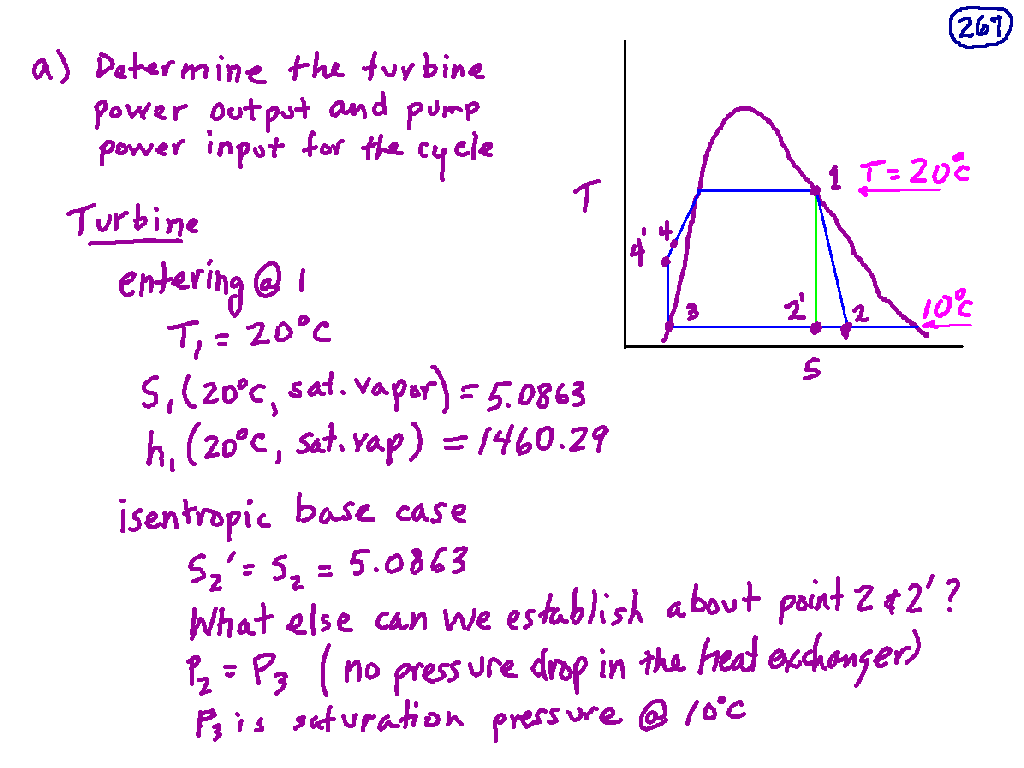 267
a) Determine the turbine
power output and pump
power input for the cycle
Turbine
entering @ 1
T₁ = 20°C
S₁ (20°C, sat. vapor) = 5.0863
h₁ (20°C, sat. vap) = 1460.29
isentropic base case
S₂' = S₂ = 5.0863
What else can we establish about point 2 & 2'?
P₂ = P₃ ( no pressure drop in the heat exchanger)
P₃ is saturation pressure @ 10°C
T
1 T = 20°C
4' 4
3 2' 2 10°C
S